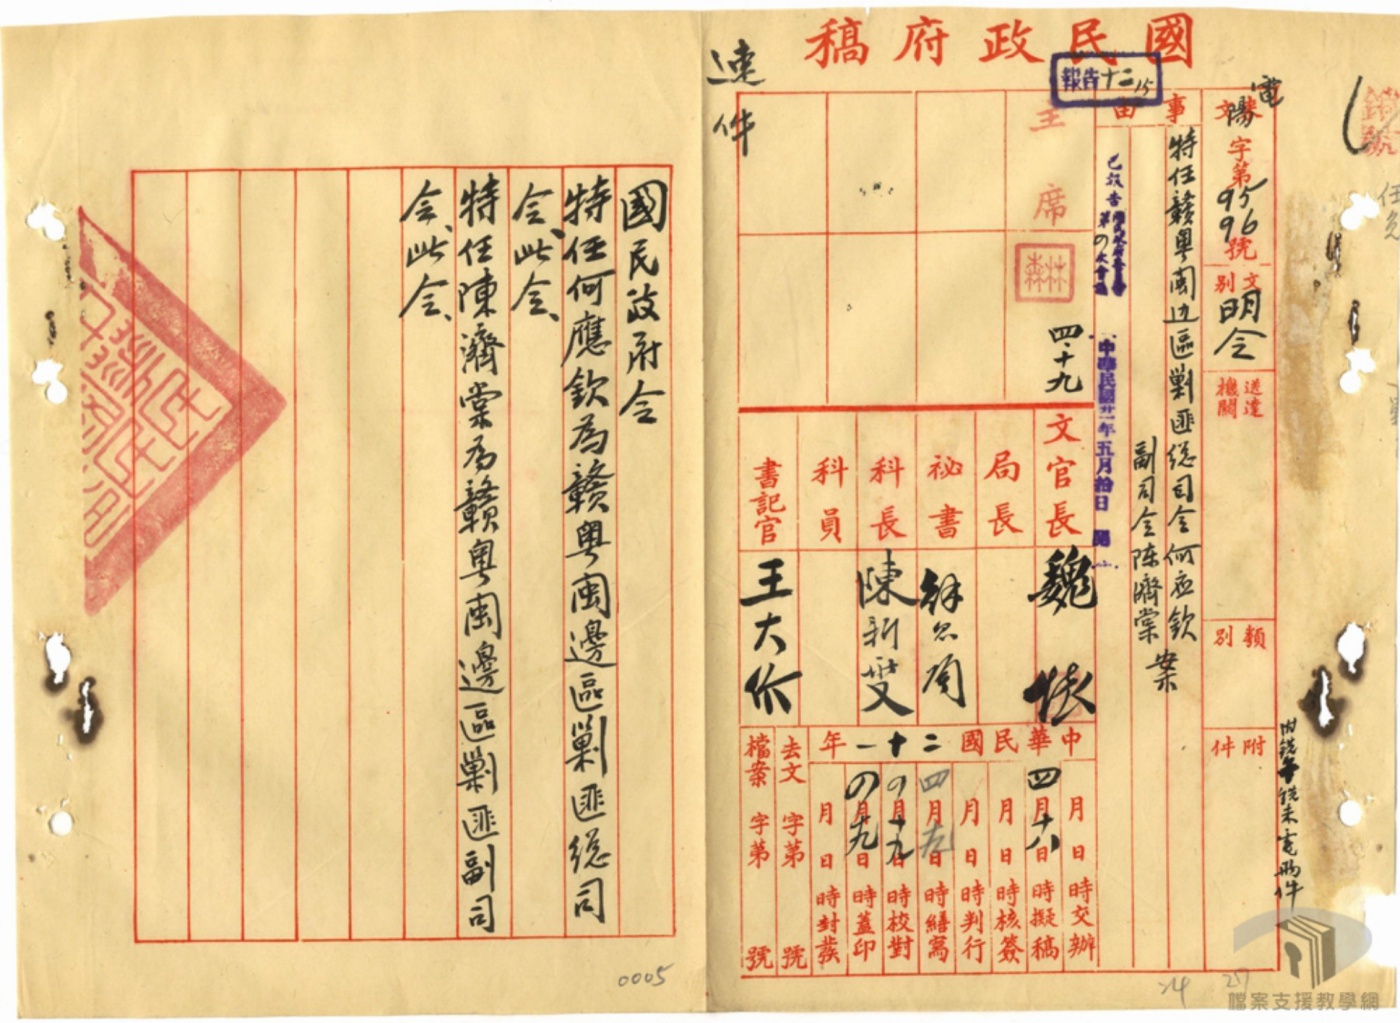 國民政府稿
速件
報告十二 15
電
來文 陽字第9596號
文別 明令
送達機關
類別
附件
事由
特任贛粤閩边區剿匪總司令何应欽
副司令陈濟棠 案
中華民國廿一年五月拾日
主席
四、十九
文官長 魏怀
局長
秘書
科長
科員
書記官 王大
中華民國二十一年
月日時交辦
四月十八日時擬稿
月日時核簽
月日時判行
四月九日時繕寫
月十九日時校對
月日時蓋印
月日時封發
去文 字第 號
檔案 字第 號
國民政府令
特任何應欽為贛粤閩邊區剿匪總司
令、此令、
特任陳濟棠為贛粤閩邊區剿匪副司
令、此令、
0005
24 27
檔案支援教學網